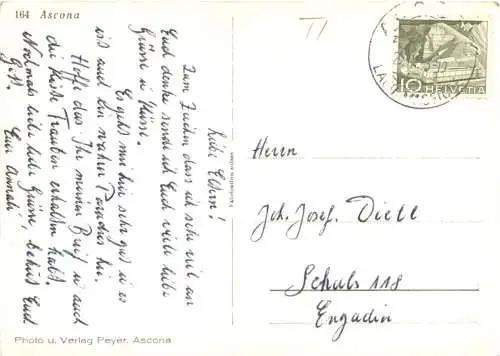 164 Ascona
Liebe Eltern!
Zum Zeichen dass ich sehr viel an
Euch denke sende ich Euch viele liebe
Grüsse u. Küsse.
Es geht mir hier sehr gut is es
ist auch ein wahres Paradies hier.
Hoffe das Ihr meinen Brief u. auch
die Kiste Trauben erhalten habt.
Nochmals viele liebe Grüsse, behüt Euch
Gott. Eure Annali
Herrn
Joh. Josef. Dietl
Schuls 118
Engadin
10 HELVETIA
Photo u. Verlag Peyer, Ascona